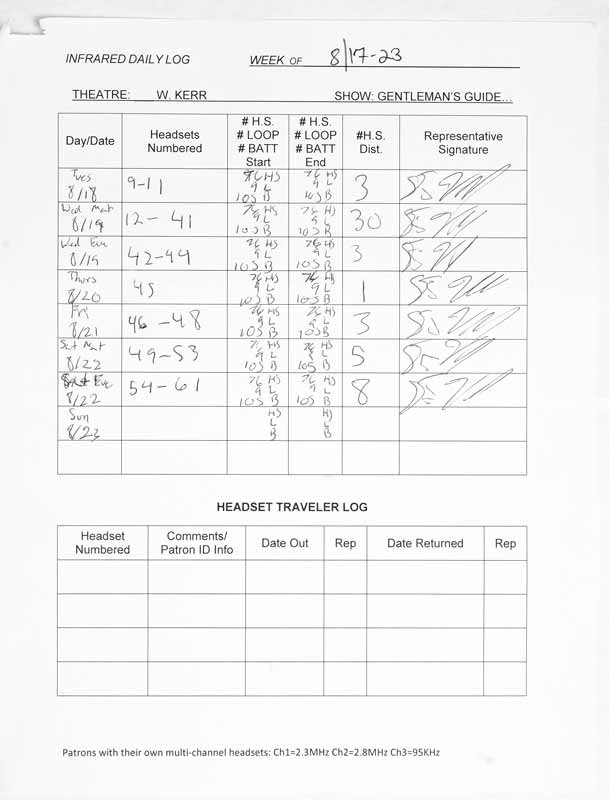 INFRARED DAILY LOG WEEK OF 8/17-23
THEATRE: W. KERR SHOW: GENTLEMAN'S GUIDE...
Day/Date Headsets Numbered # H.S. # LOOP # BATT Start # H.S. # LOOP # BATT End #H.S. Dist. Representative Signature
Tues 8/18 9-11 76 HS 9 L 105 B 76 HS 9 L 105 B 3
Wed Mat 8/19 12-41 76 HS 9 L 105 B 76 HS 9 L 105 B 30
Wed Eve 8/19 42-44 76 HS 9 L 105 B 76 HS 9 L 105 B 3
Thurs 8/20 45 76 HS 9 L 105 B 76 HS 9 L 105 B 1
Fri 8/21 46-48 76 HS 9 L 105 B 76 HS 9 L 105 B 3
Sat Mat 8/22 49-53 76 HS 9 L 105 B 76 HS 9 L 105 B 5
Sat Eve 8/22 54-61 76 HS 9 L 105 B 76 HS 9 L 105 B 8
Sun 8/23 HS L B HS L B
HEADSET TRAVELER LOG
Headset Numbered Comments/ Patron ID Info Date Out Rep Date Returned Rep
Patrons with their own multi-channel headsets: Ch1=2.3MHz Ch2=2.8MHz Ch3=95KHz